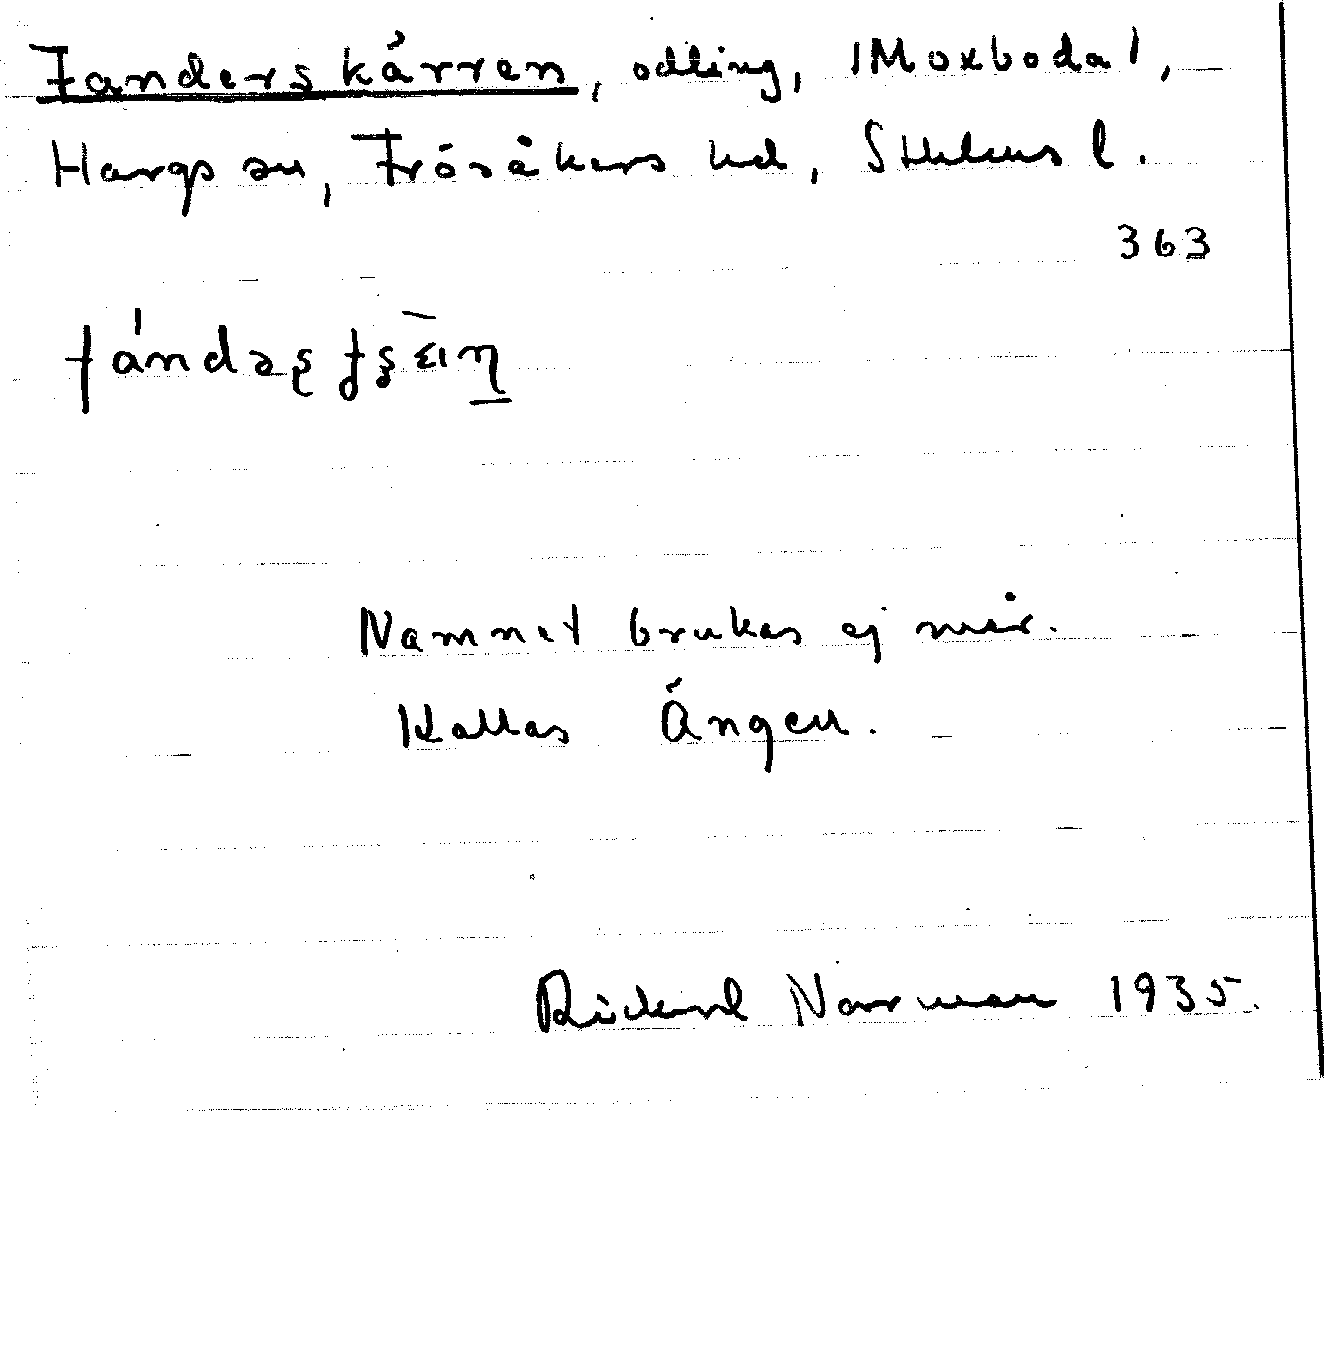 Fanderskärren, odling, (Moxboda),
Hargs sn, Frösåkers hd, Sthlms l.
363
Namnet brukas ej mer.
Kallas Ängen.
Rickard Norrman 1935.